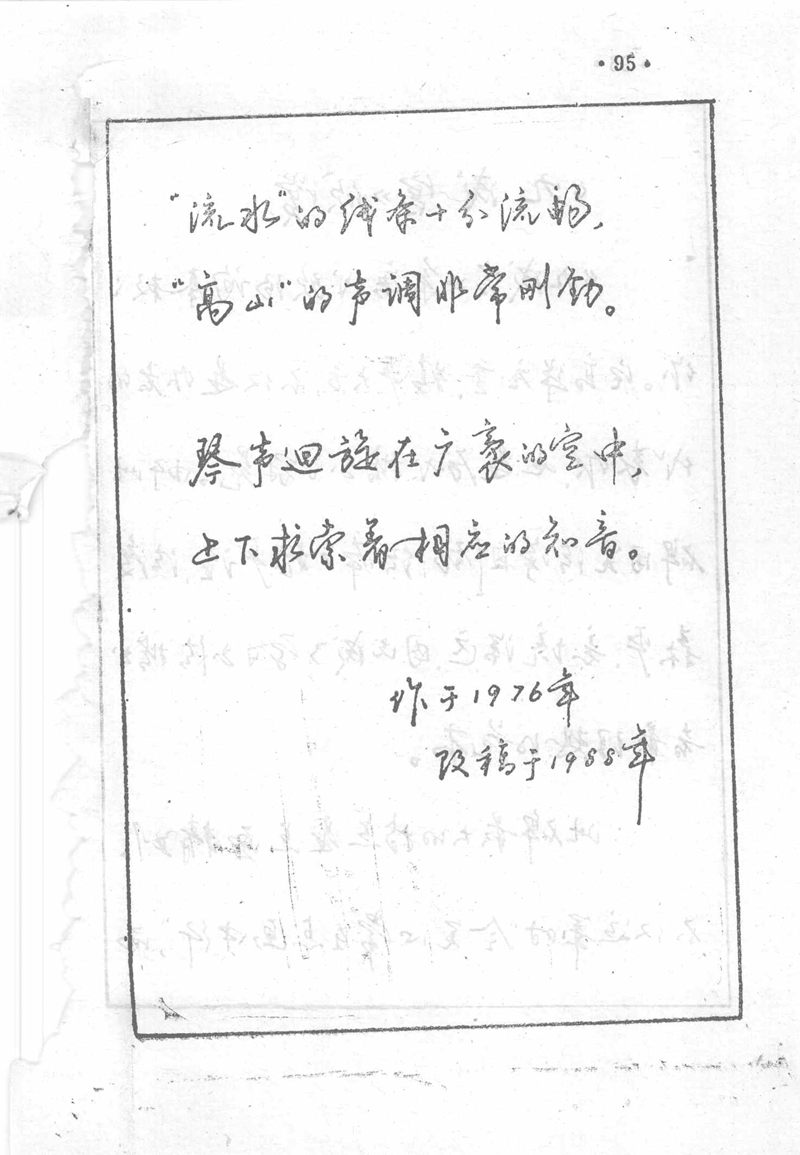 ·95·
"流水"的线条十分流畅,
"高山"的声调非常刚劲。
琴声迴旋在广袤的空中,
上下求索着相应的知音。
作于1976年
改稿于1988年